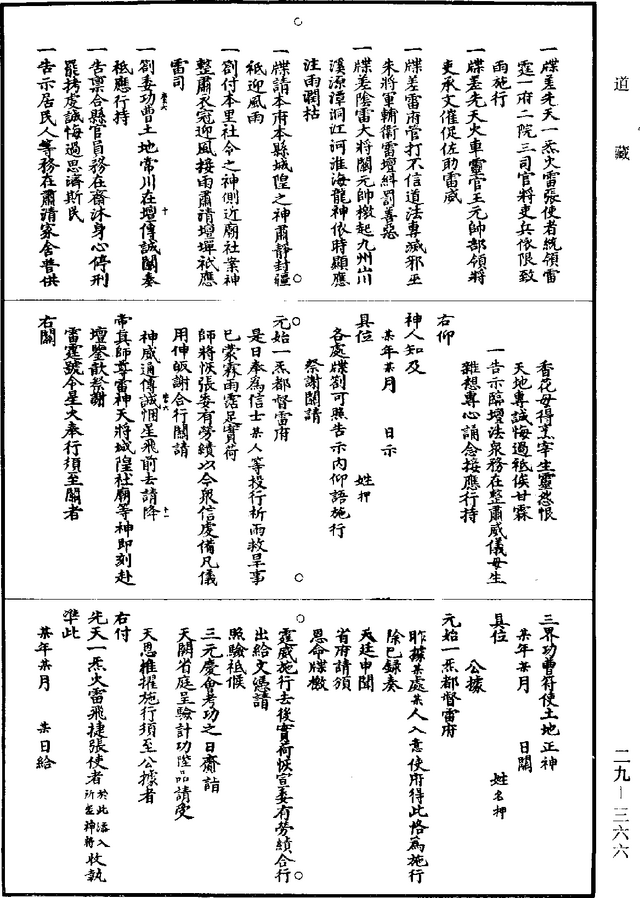 道藏
一牒差先天一炁火雷張使者統領雷
霆一府二院三司官將吏兵依限致
雨施行
一牒差先天火車靈官王元帥部領將
吏承文催促佐助雷威
一牒差雷府管打不信道法專滅邪巫
朱將軍輔衛雷壇糾罰善惡
一牒差陰雷大將閣元帥檄起九州山川
溪源潭洞江河淮海龍神依時顯應
注雨潤枯
一牒請本府本縣城隍之神肅靜封疆
祇迎風雨
一劄付本里社令之神側近廟社案神
整肅衣冠迎風接雨肅清壇墠祇應
雷司
一劄委功曹土地常川在壇傳誠關奏
祇應行持
一告稟合縣官員務在齋沐身心停刑
罷拷虔誠悔過思濟斯民
一告示居民人等務在肅清家舍普供
香花毋得烹宰生靈怨恨
天地專誠悔過祇俟甘霖
一告示臨壇法衆務在整肅威儀毋生
雜想專心誦念接應行持
右仰
神人知及
某年某月 日示
具位 姓押
各處牒劄可照告示內仰語施行
祭謝關請
元始一炁都督雷府
是日奉為信士某人等投行祈雨救旱事
已蒙霖雨露足實荷
師將恢張委有勞績以今衆信虔備凡儀
用伸皈謝合行關請
神威通傳誠悃星飛前去請降
常真師尊雷神天將城隍社廟等神即刻赴
壇鑒歆祭謝
雷霆號令星火奉行須至關者
右關
三界功曹符使土地正神
某年某月 日關
具位 姓名押
公據
元始一炁都督雷府
昨據某處某人入意使府得此恪為施行
除已録奏
天廷申聞
省府請頒
恩命牒檄
霆威施行去後實荷恢宣委有勞績合行
出給文憑請
照驗祇候
三元慶會考功之日齎詣
天閣省庭呈驗計功陞品請受
天恩推擢施行須至公據者
右付
先天一炁火雷飛捷張使者於此添入所差神將收執
準此
某年某月 某日給
二九—三六六